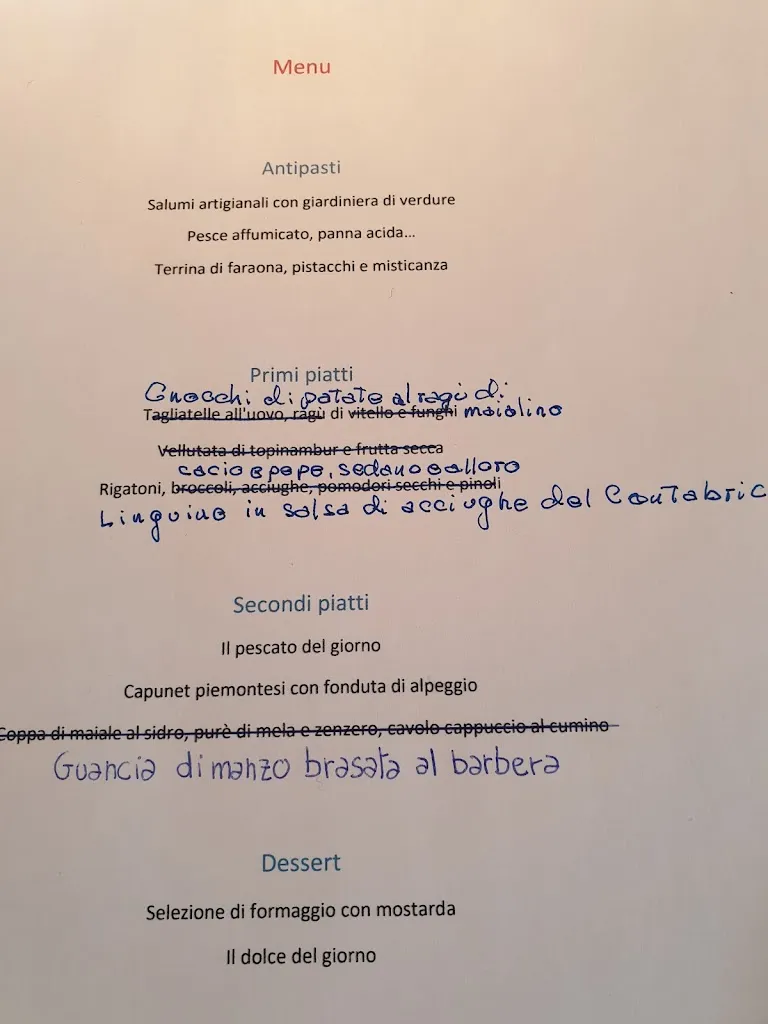 Menu
Antipasti
Salumi artigianali con giardiniera di verdure
Pesce affumicato, panna acida...
Terrina di faraona, pistacchi e misticanza
Primi piatti
Gnocchi di patate al ragù di
Tagliatelle all'uovo, ragù di vitello e funghi maialino
Vellutata di topinambur e frutta secca
cacio e pepe, sedano e alloro
Rigatoni, broccoli, acciughe, pomodori secchi e pinoli
Linguine in salsa di acciughe del Cantabric
Secondi piatti
Il pescato del giorno
Capunet piemontesi con fonduta di alpeggio
Coppa di maiale al sidro, purè di mela e zenzero, cavolo cappuccio al cumino
Guancia di manzo brasata al barbera
Dessert
Selezione di formaggio con mostarda
Il dolce del giorno